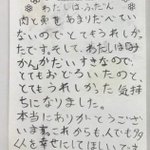 わたしは、ふだん
肉と魚をあまりたべてい
ないのでとてもうれしか
ったです。そして、わたしは
かんがだいすきなので、
とてもおどろいたのと、
とてもうれしかった気持
ちになりました。
本当にありがとうござい
ます。これからも、人でも多
く人を幸せにしてほしいでま